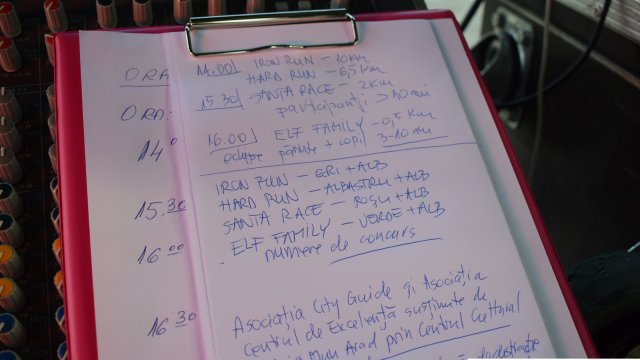 ORA
ORA:
14⁰
15.30
16 00
16 30
14.00 IRON RUN - 10 km
HARD RUN - 6,5 km
15.30 SANTA RACE - 2 km
participanți > 10 ani
16.00 ELF FAMILY - 0,5 Km
echipe părinte + copil 3-10 ani
IRON RUN - GRI + ALB
HARD RUN - ALBASTRU + ALB
SANTA RACE - ROȘU + ALB
ELF FAMILY - VERDE + ALB
numere de concurs
Asociația City Guide și Asociația
Centrul de Excelență susținute de
Mun Arad prin Centrul Cultural